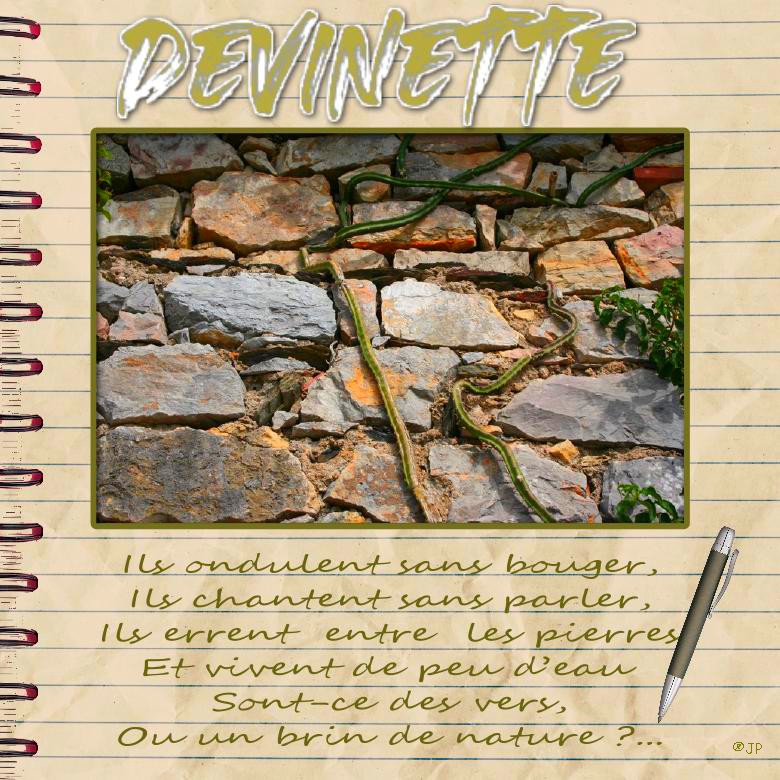 DEVINETTE
Ils ondulent sans bouger,
Ils chantent sans parler,
Ils errent entre les pierres
Et vivent de peu d'eau
Sont-ce des vers,
Ou un brin de nature ?...
®JP